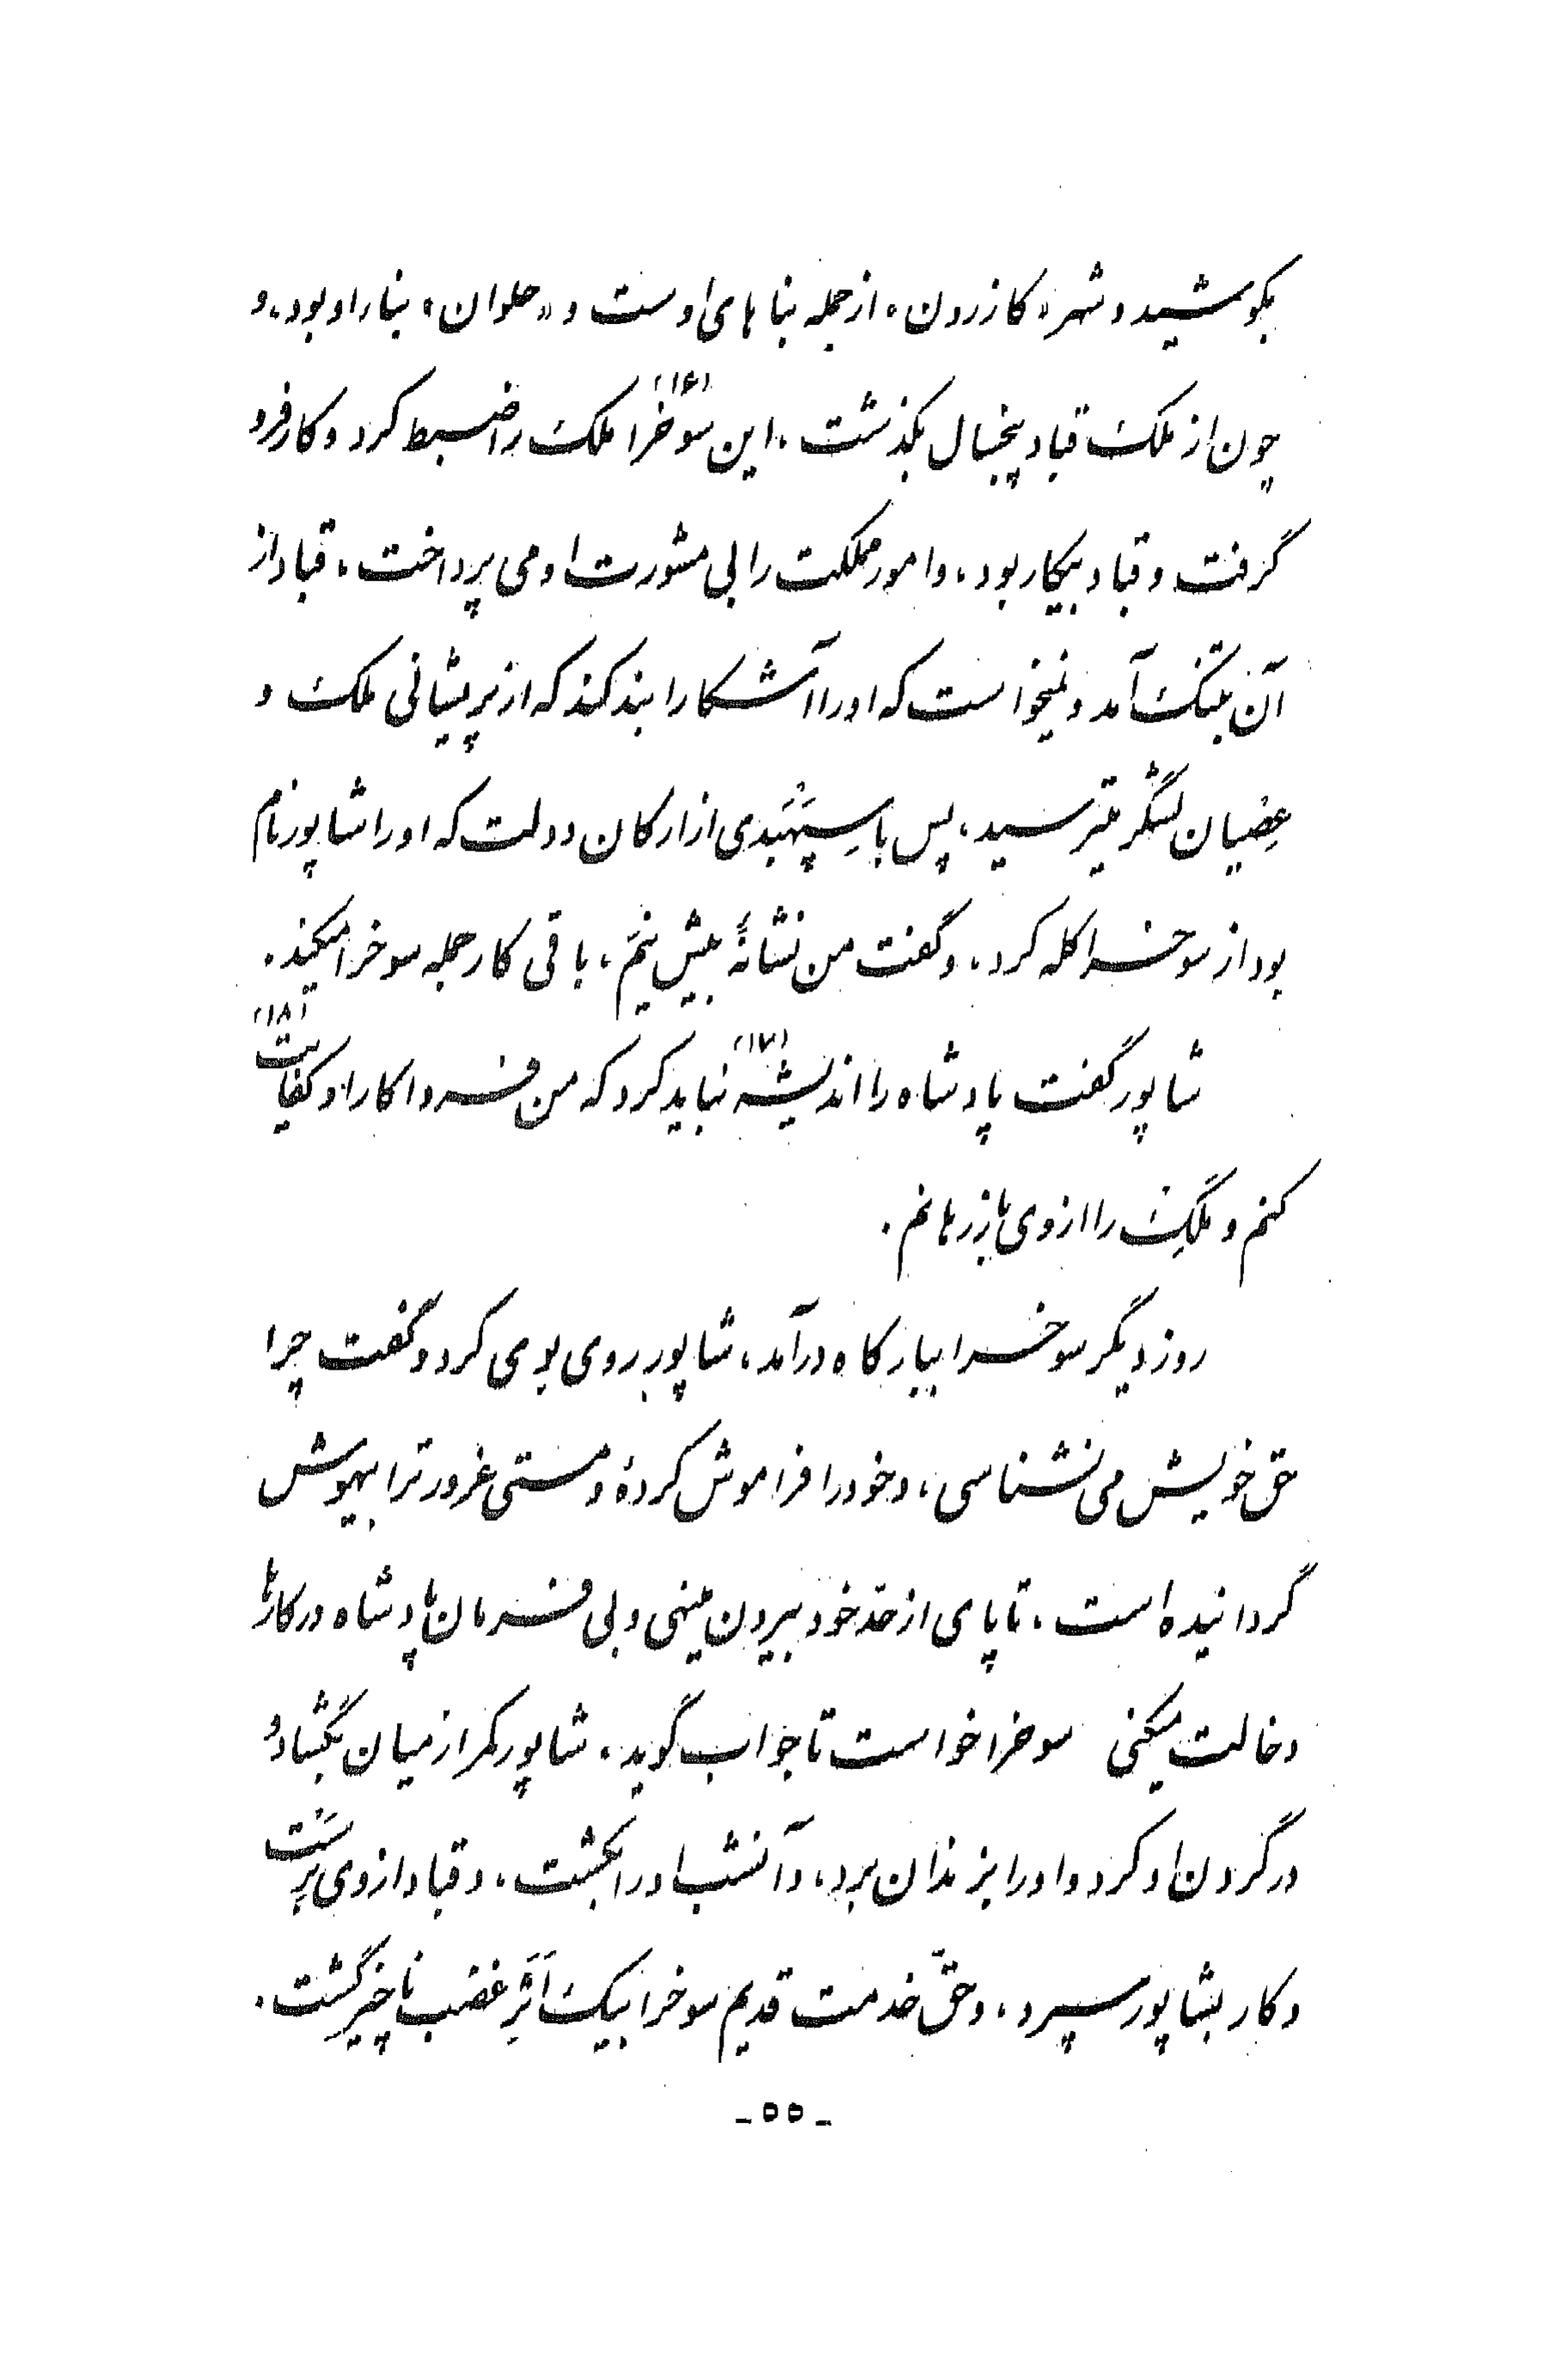 بکوشید و شهر «کازرون» از جمله بناهای اوست و «حلوان» بنا را و بود، و
چون از ملک قباد پنجسال بگذشت، این سوخرا (۱۶) ملک را ضبط کرد و کار فرو
گرفت و قباد بیکار بود، و امور مملکت را بی مشورت او می پرداخت، قباد از
آن بتنگ آمد و نمیخواست که او را آشکارا بند کند که از پریشانی ملک و
عصیان لشگر میترسید، پس با سپهبدی از ارکان دولت که او را شاپور نام
بود از سوخرا گله کرد، و گفت من نشانهٔ بیش نیم، باقی کار جمله سوخرا میکند.
شاپور گفت پادشاه را اندیشه (۱۷) نباید کرد که من فردا کار او کفایت (۱۸)
کنم و ملک را از وی باز رهانم.
روز دیگر سوخرا ببارگاه درآمد، شاپور روی بوی کرد و گفت چرا
حق خویش می نشناسی، و خود را فراموش کردهٔ و مستی غرور ترا بیهوش
گردانیده است، تا پای از حد خود بیرون مینهی و بی فرمان پادشاه در کارها
دخالت میکنی سوخرا خواست تا جواب گوید، شاپور کمر از میان بگشاد و
در گردن او کرد و او را بزندان برد، و آنشب او را بکشت، و قباد از وی برست
و کار بشاپور سپرد، و حقّ خدمت قدیم سوخرا بیک اثر غضب ناچیز گشت.
- ۵۵ -